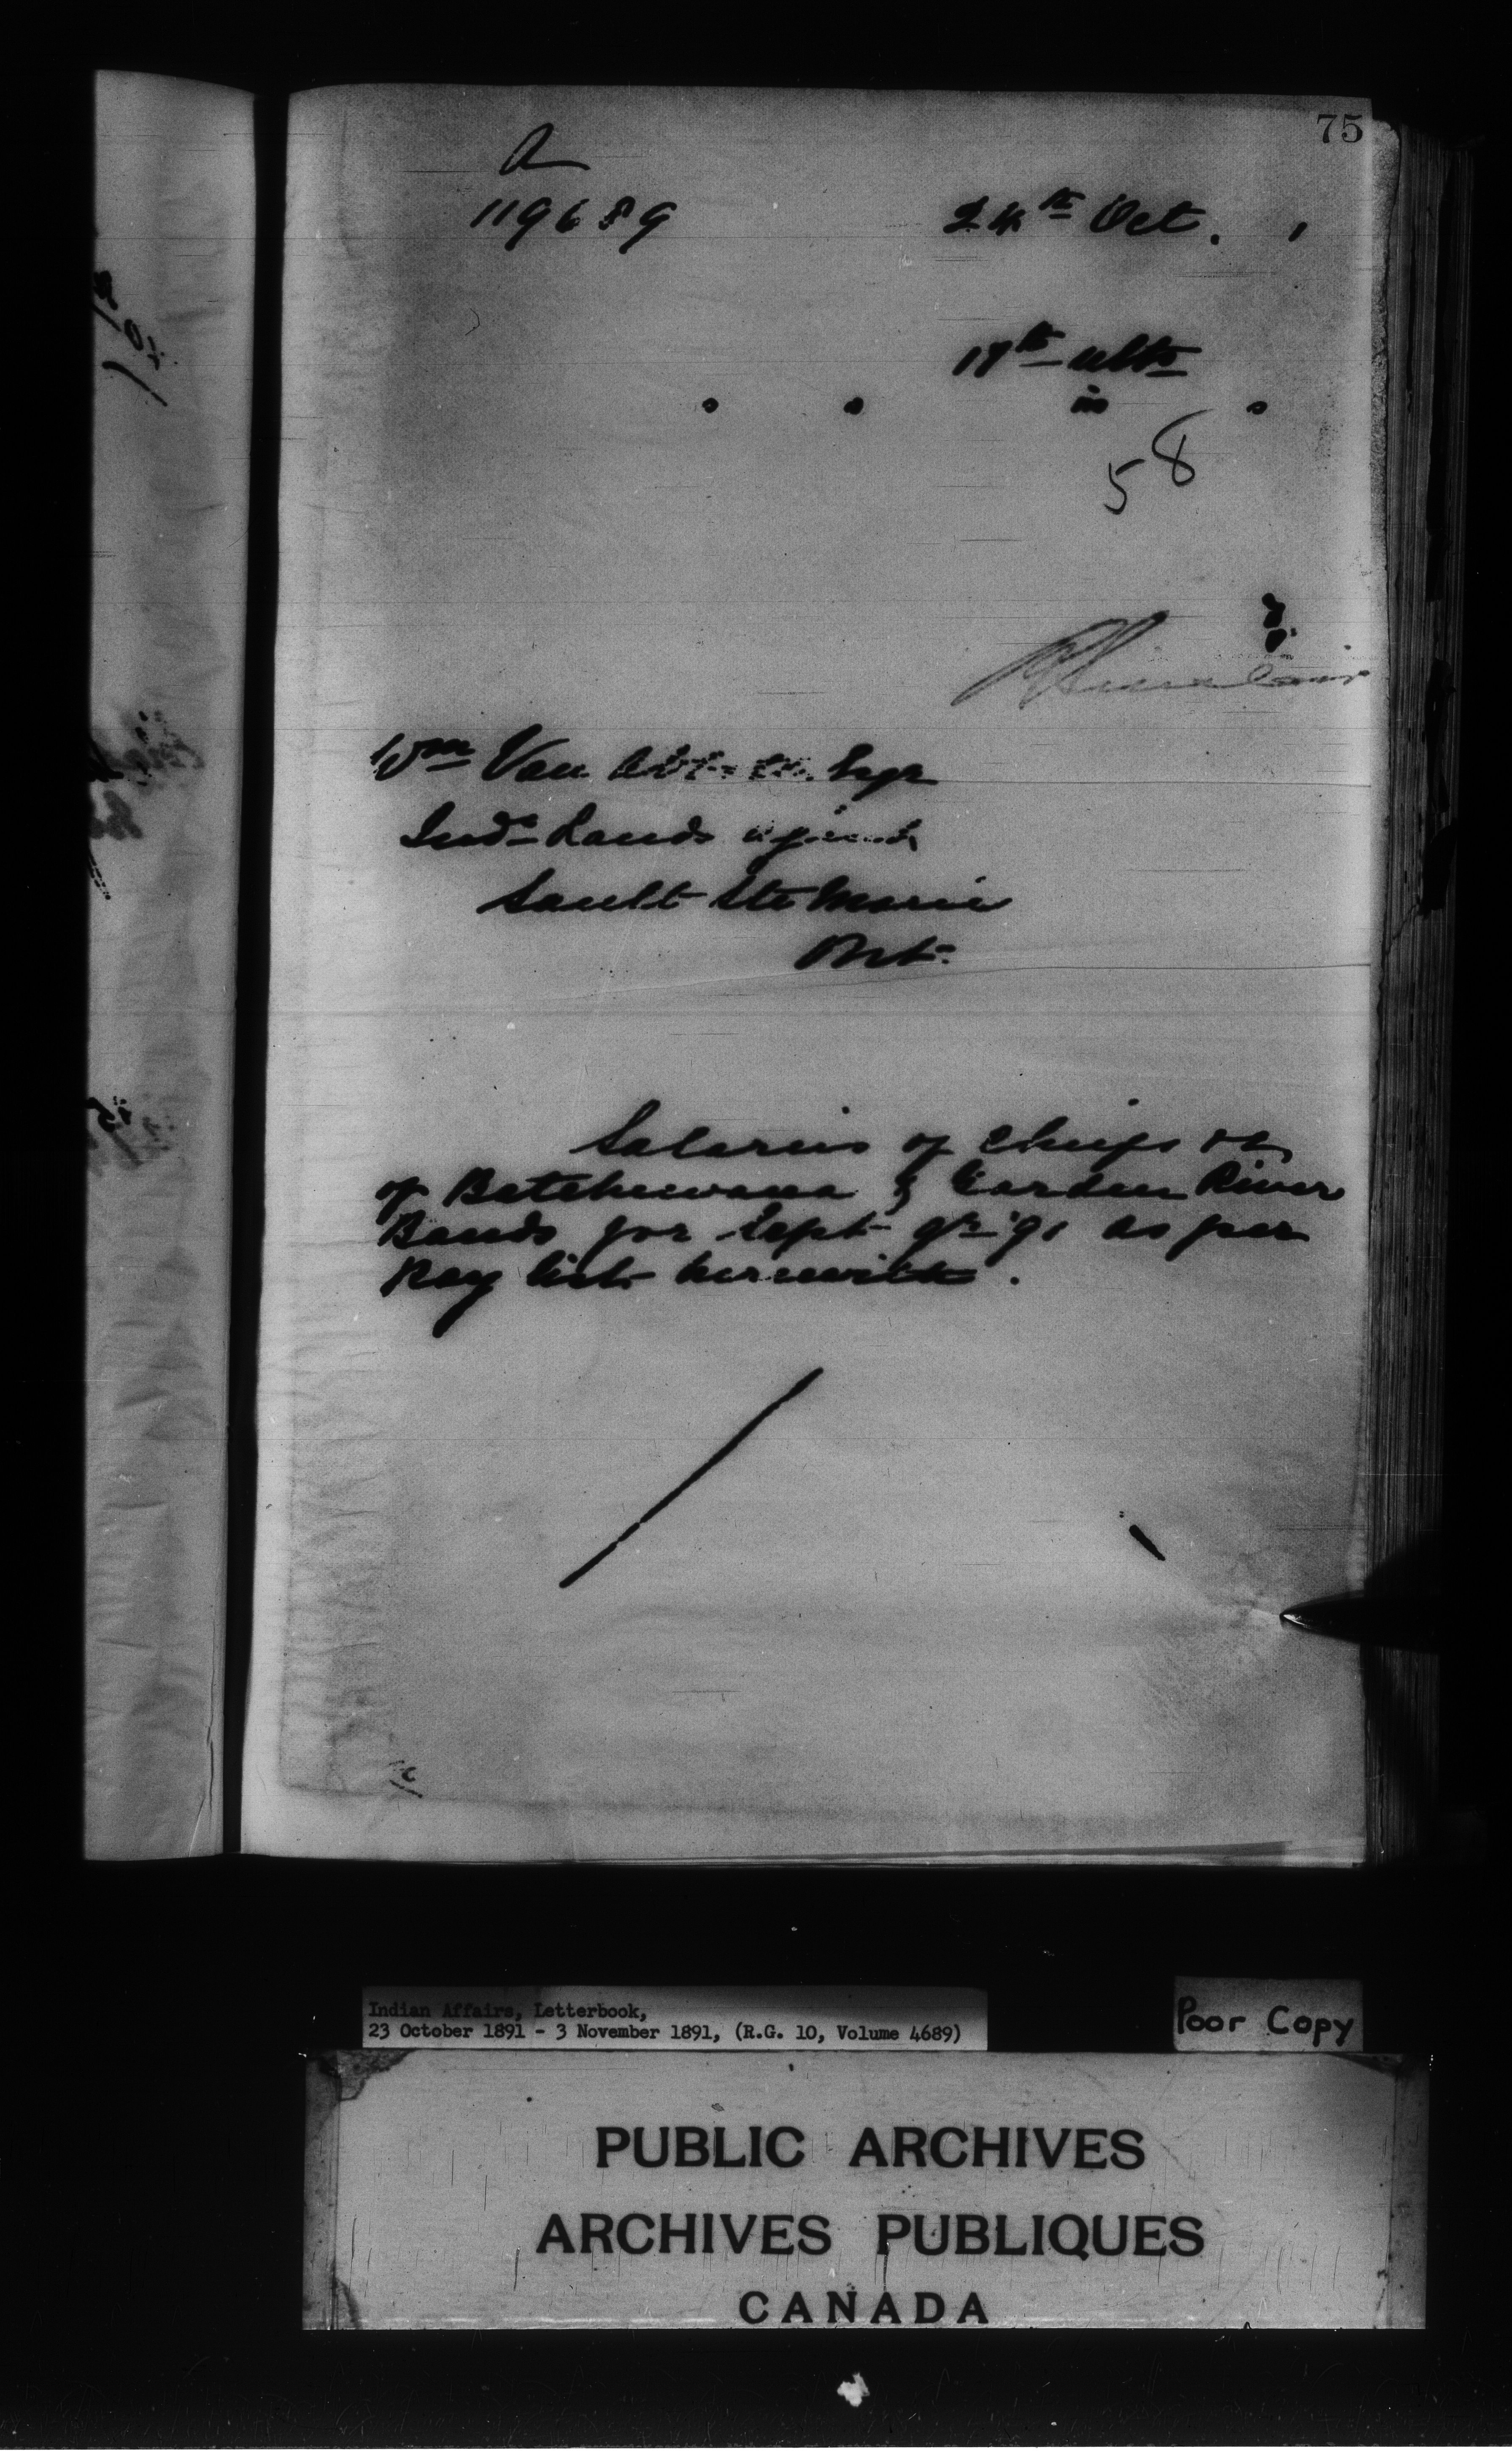 75
A
119689
24th Oct. 1
17th ulto
in
58
Wm Van Esqr
Indn Lands agent
Sault Ste Marie
Ont.
Salaries of Chiefs &c
of Batchewana & Garden River
Bands for Sept qr '91 as per
Pay list herewith.
Indian Affairs, Letterbook,
23 October 1891 - 3 November 1891, (R.G. 10, Volume 4689)
Poor Copy
PUBLIC ARCHIVES
ARCHIVES PUBLIQUES
CANADA